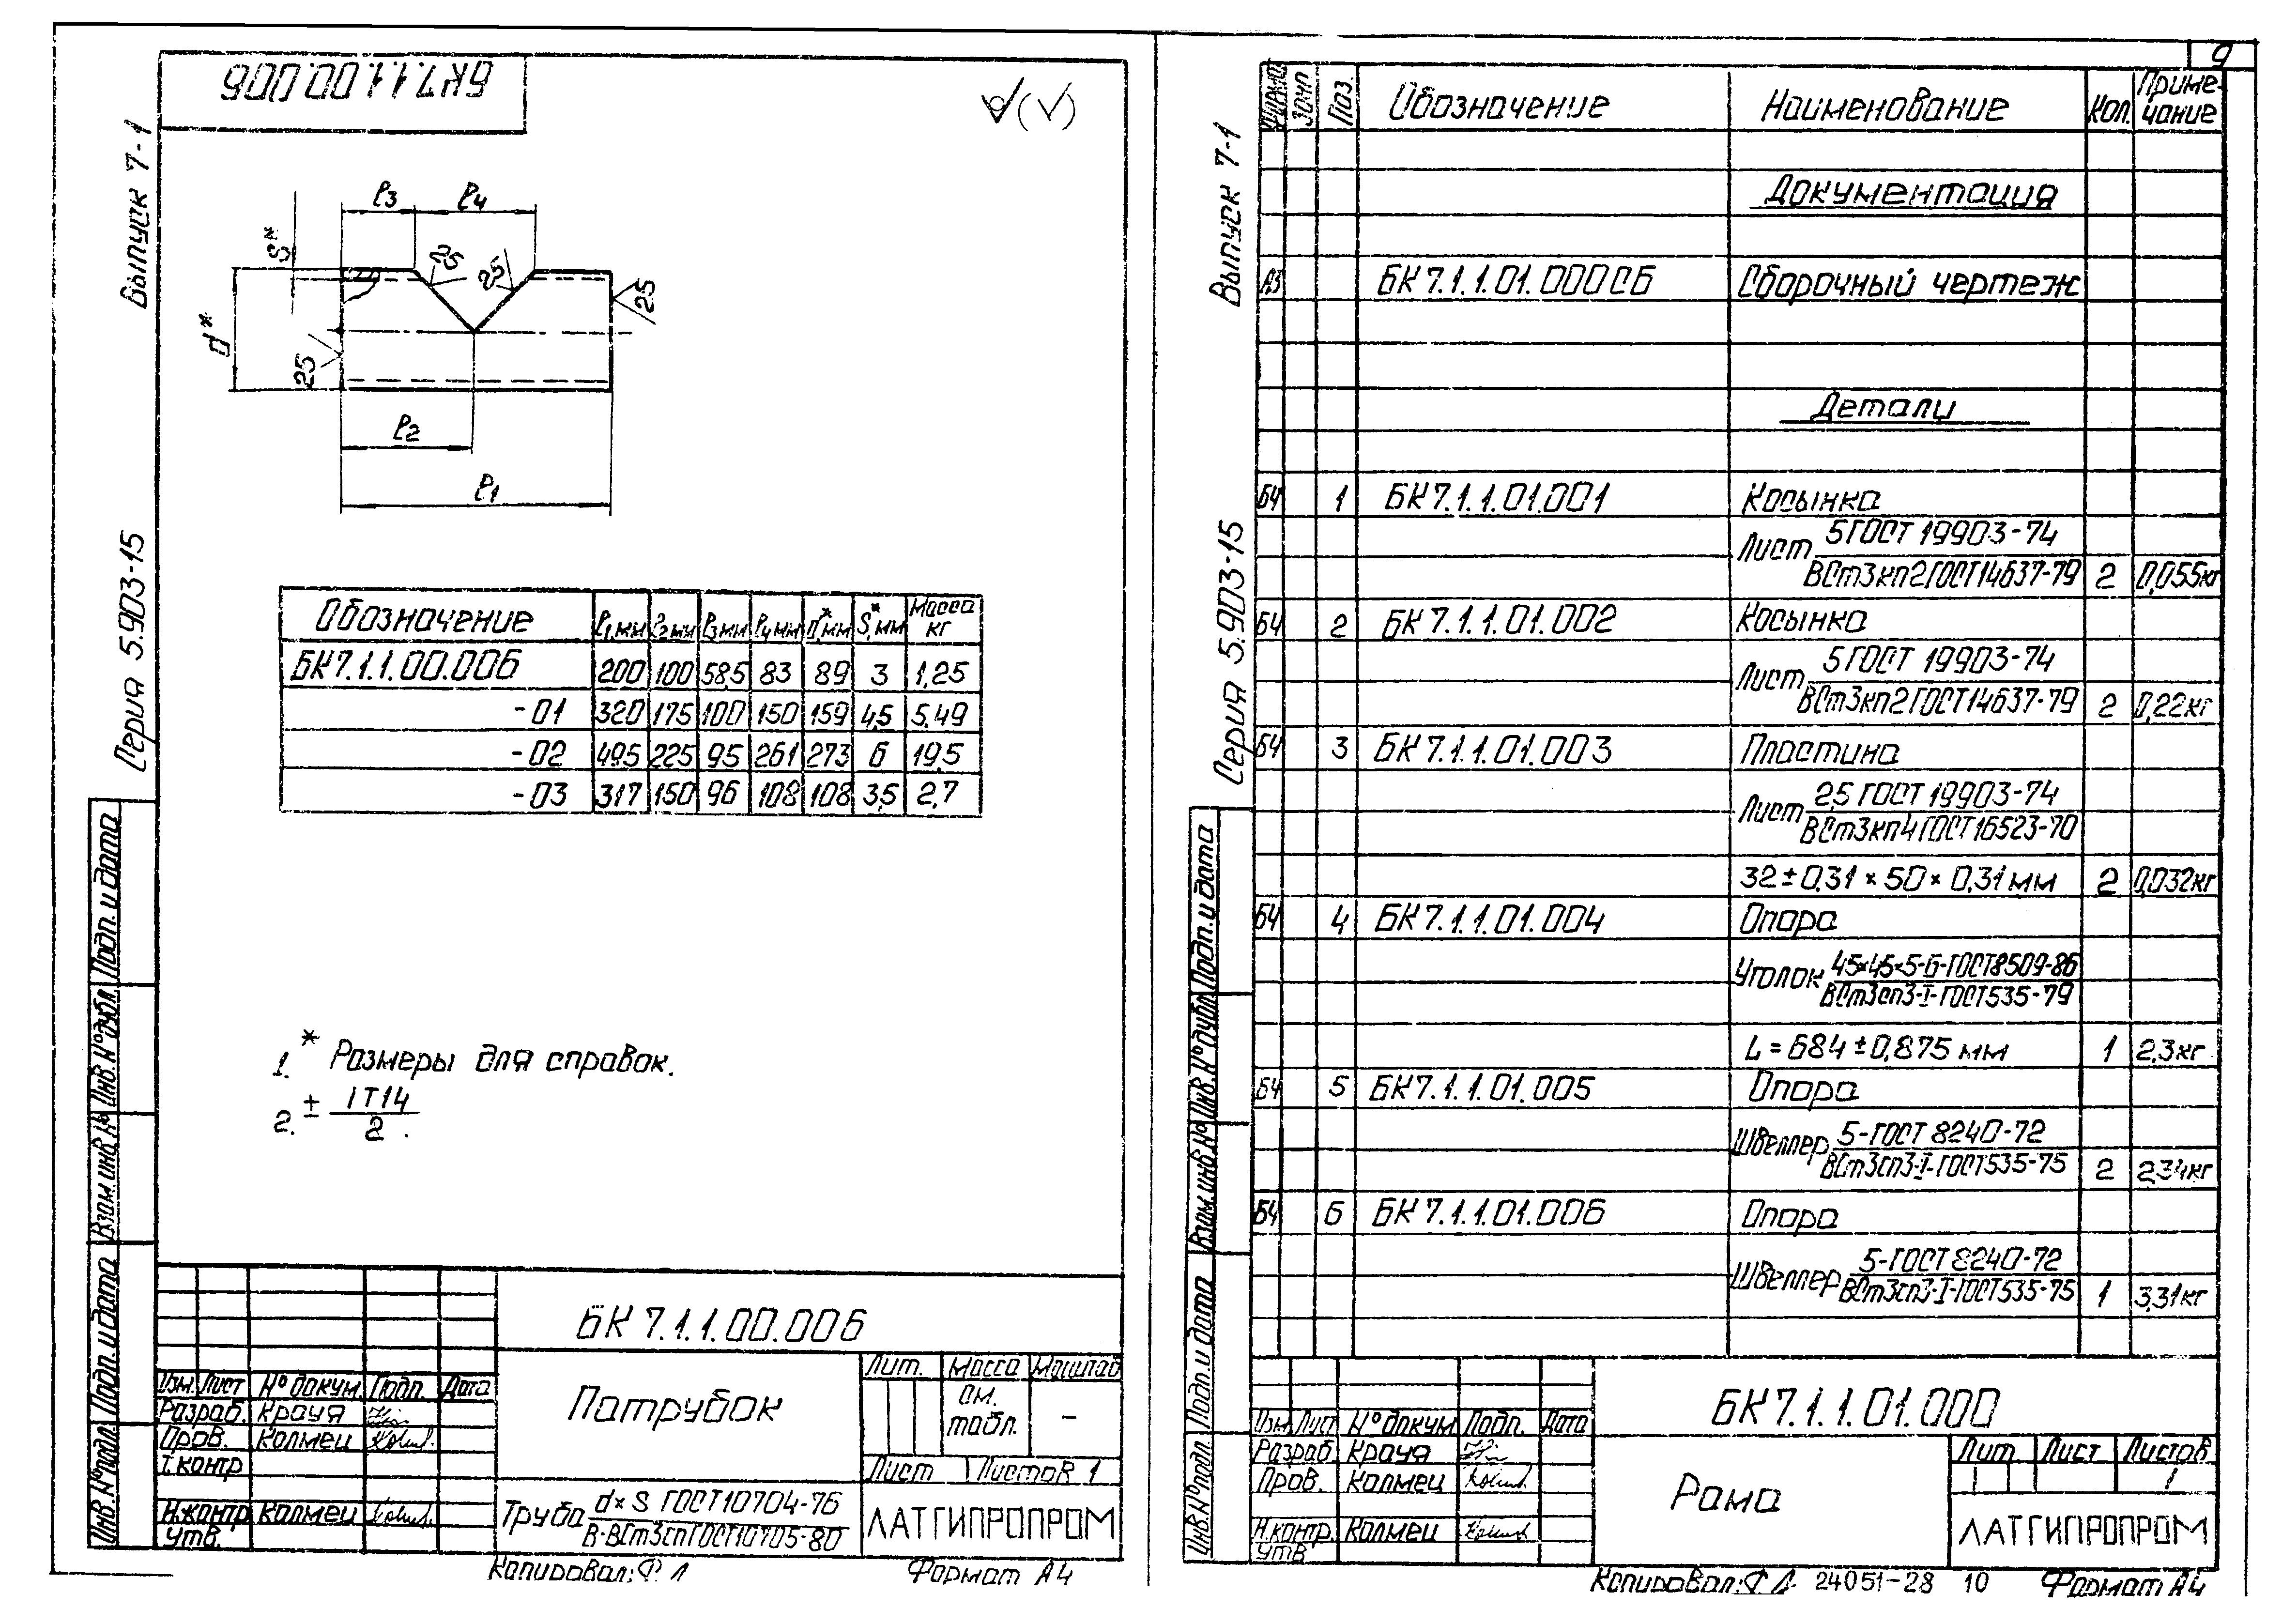 БК7.1.1.00.006
Выпуск 7-1
Серия 5.903-15
ℓ3
ℓ4
S*
25
25
25
d*
25
ℓ2
ℓ1
Обозначение ℓ1,мм ℓ2мм ℓ3мм ℓ4мм d*,мм S*,мм Масса кг
БК7.1.1.00.006 200 100 58,5 83 89 3 1,25
-01 320 175 100 150 159 4,5 5,49
-02 495 225 95 261 273 6 19,5
-03 317 150 96 108 108 3,5 2,7
1. * Размеры для справок.
2. ± IT14
2.
Инв.№подл.
Подп. и дата
Взам.инв.№
Инв.№дубл.
Подп. и дата
БК 7.1.1.00.006
Изм. Лист №докум. Подп. Дата
Разраб. Крауя
Пров. Колмец
Т.контр
Н.контр Колмец
Утв.
Патрубок
Лит. Масса Масштаб
см. табл. –
Лист Листов 1
Труба d×S ГОСТ10704-76
В-ВСт3спГОСТ10705-80
ЛАТГИПРОПРОМ
Копировал: Ф.Л
Формат А4
9
Выпуск 7-1
Серия 5.903-15
Формат Зона Поз. Обозначение Наименование Кол. Приме-
чание
Документация
А3 БК7.1.1.01.000СБ Сборочный чертеж
Детали
Б4 1 БК7.1.1.01.001 Косынка
Лист 5ГОСТ 19903-74
ВСт3кп2ГОСТ14637-79 2 0,055кг
Б4 2 БК7.1.1.01.002 Косынка
Лист 5ГОСТ 19903-74
ВСт3кп2ГОСТ14637-79 2 0,22кг
Б4 3 БК7.1.1.01.003 Пластина
Лист 2,5 ГОСТ 19903-74
ВСт3кп4ГОСТ16523-70
32±0,31×50×0,31мм 2 0,032кг
Б4 4 БК7.1.1.01.004 Опора
Уголок 45×45×5-Б-ГОСТ8509-86
ВСт3сп3-I-ГОСТ535-79
L=684±0,875 мм 1 2,3кг.
Б4 5 БК7.1.1.01.005 Опора
Швеллер 5-ГОСТ 8240-72
ВСт3сп3-I-ГОСТ535-75 2 2,34кг
Б4 6 БК7.1.1.01.006 Опора
Швеллер 5-ГОСТ8240-72
ВСт3сп3-I-ГОСТ535-75 1 3,31кг
Инв.№подл.
Подп. и дата
Взам.инв.№
Инв.№дубл.
Подп. и дата
БК7.1.1.01.000
Изм. Лист №докум. Подп. Дата
Разраб. Крауя
Пров. Колмец
Н.контр. Колмец
Утв
Рама
Лит. Лист Листов
1
ЛАТГИПРОПРОМ
Копировал: Ф.Л. 24051-28 10 Формат А4